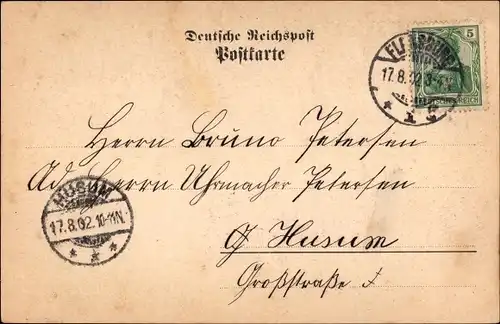 Deutsche Reichspost
Postkarte
5
FLENSBURG
17.8.02.3-4N.
* 1 *
REICH
Herrn Bruno Petersen
Ad. Herrn Uhrmacher Petersen
HUSUM
17.8.02.10-11N.
* * *
Husum
Großstraße